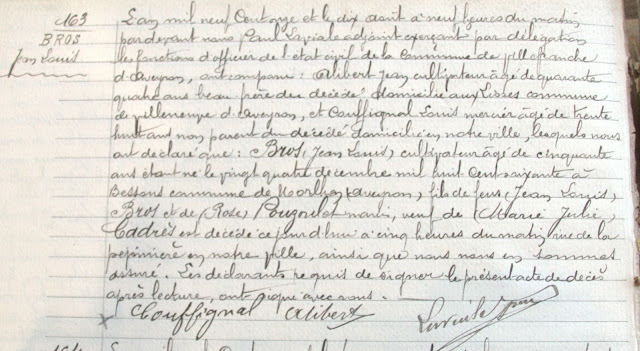 163
BROS
Jean Louis
L'an mil neuf Cent onze et le dix août à neuf heures du matin
par devant nous Paul adjoint exerçant par délégation
les fonctions d'officier de l'état civil de la Commune de Villefranche
d'Aveyron, ont comparu : Alibert Jean, cultipateur âgé de quarante
quatre ans beau père du décédé domicilié aux commune
de Villeneuve d'Aveyron, et Couffignal Louis mercier âgé de trente
huit ans non parent du décédé domicilié en notre ville, lesquels nous
ont déclaré que : Bros, (Jean Louis) cultivateur âgé de cinquante
ans étant né le vingt quatre décembre mil huit cent soixante à
Bessous commune de Morlhon (Aveyron), fils de feus (Jean Louis)
Bros et de (Rose) mariés, veuf de (Marie Julie)
Cadrès est décédé ce jourd'hui à cinq heures du matin, rue de la
pépinière en notre ville, ainsi que nous nous en sommes
assuré. Les déclarants requis de signer le présent acte de décès
après lecture, ont signé avec nous.
Couffignal Alibert